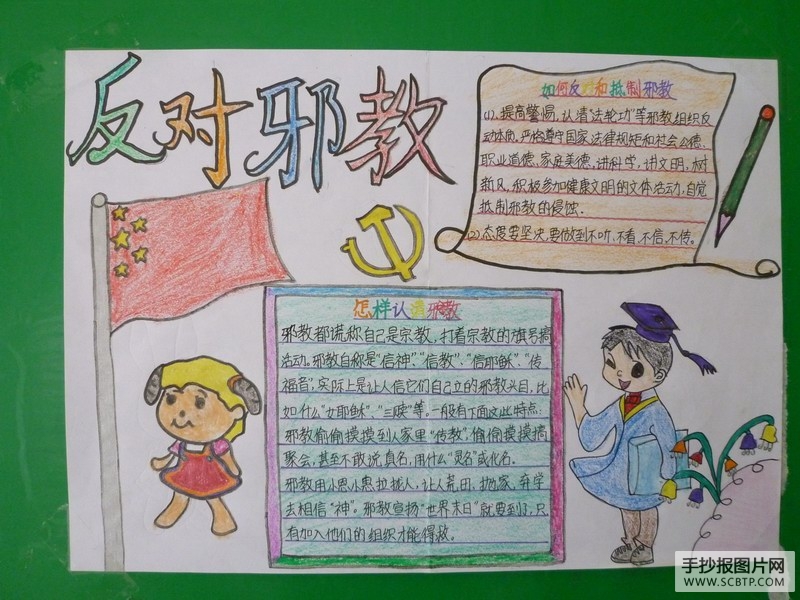 反对邪教
如何反对和抵制邪教
(1)、提高警惕,认清“法轮功”等邪教组织反
动本质,严格遵守国家法律规矩和社会公德、
职业道德、家庭美德,讲科学,讲文明,树
新风,积极参加健康文明的文体活动,自觉
抵制邪教的侵蚀。
(2)、态度要坚决,要做到不听、不看、不信、不传。
怎样认清邪教
邪教都谎称自己是宗教,打着宗教的旗号搞
活动。邪教自称是“信神”、“信教”、“信耶稣”、“传
福音”,实际上是让人信它们自己立的邪教头目,比
如什么“女耶稣”、“三赎”等。一般有下面这些特点:
邪教偷偷摸摸到人家里“传教”,偷偷摸摸搞
聚会,甚至不敢说真名,用什么“灵名”或化名。
邪教用小恩小惠拉拢人,让人荒田、抛家、弃学
去相信“神”。邪教宣扬“世界末日”就要到了,只
有加入他们的组织才能得救。
手抄报图片网
WWW.SCBTP.COM